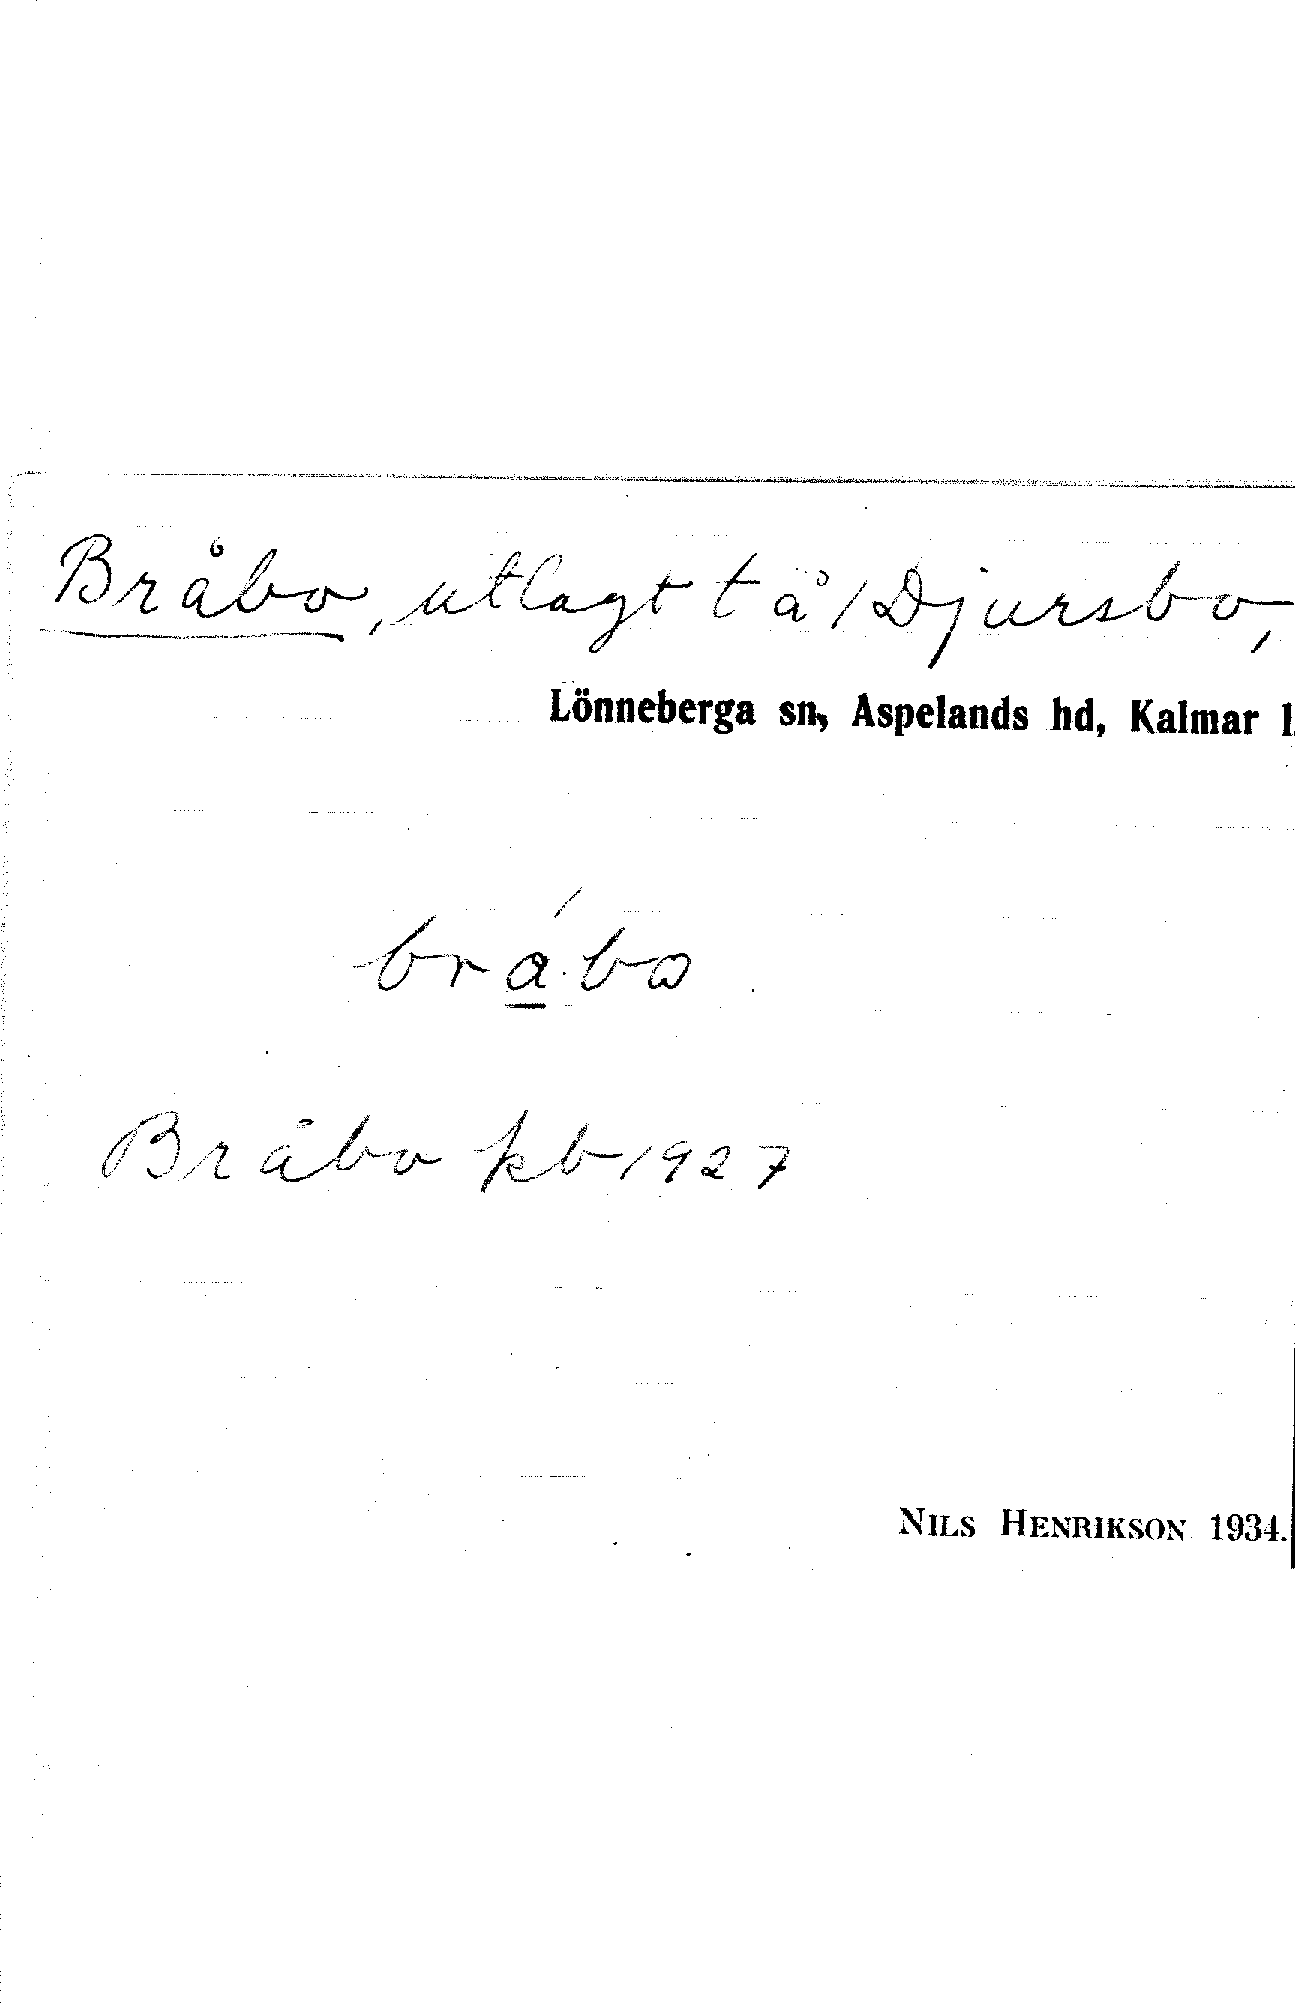 Bråbo, utlagt t å /Djursbo,
Lönneberga sn, Aspelands hd, Kalmar l.
Bråbo kb 1927
NILS HENRIKSON 1934.